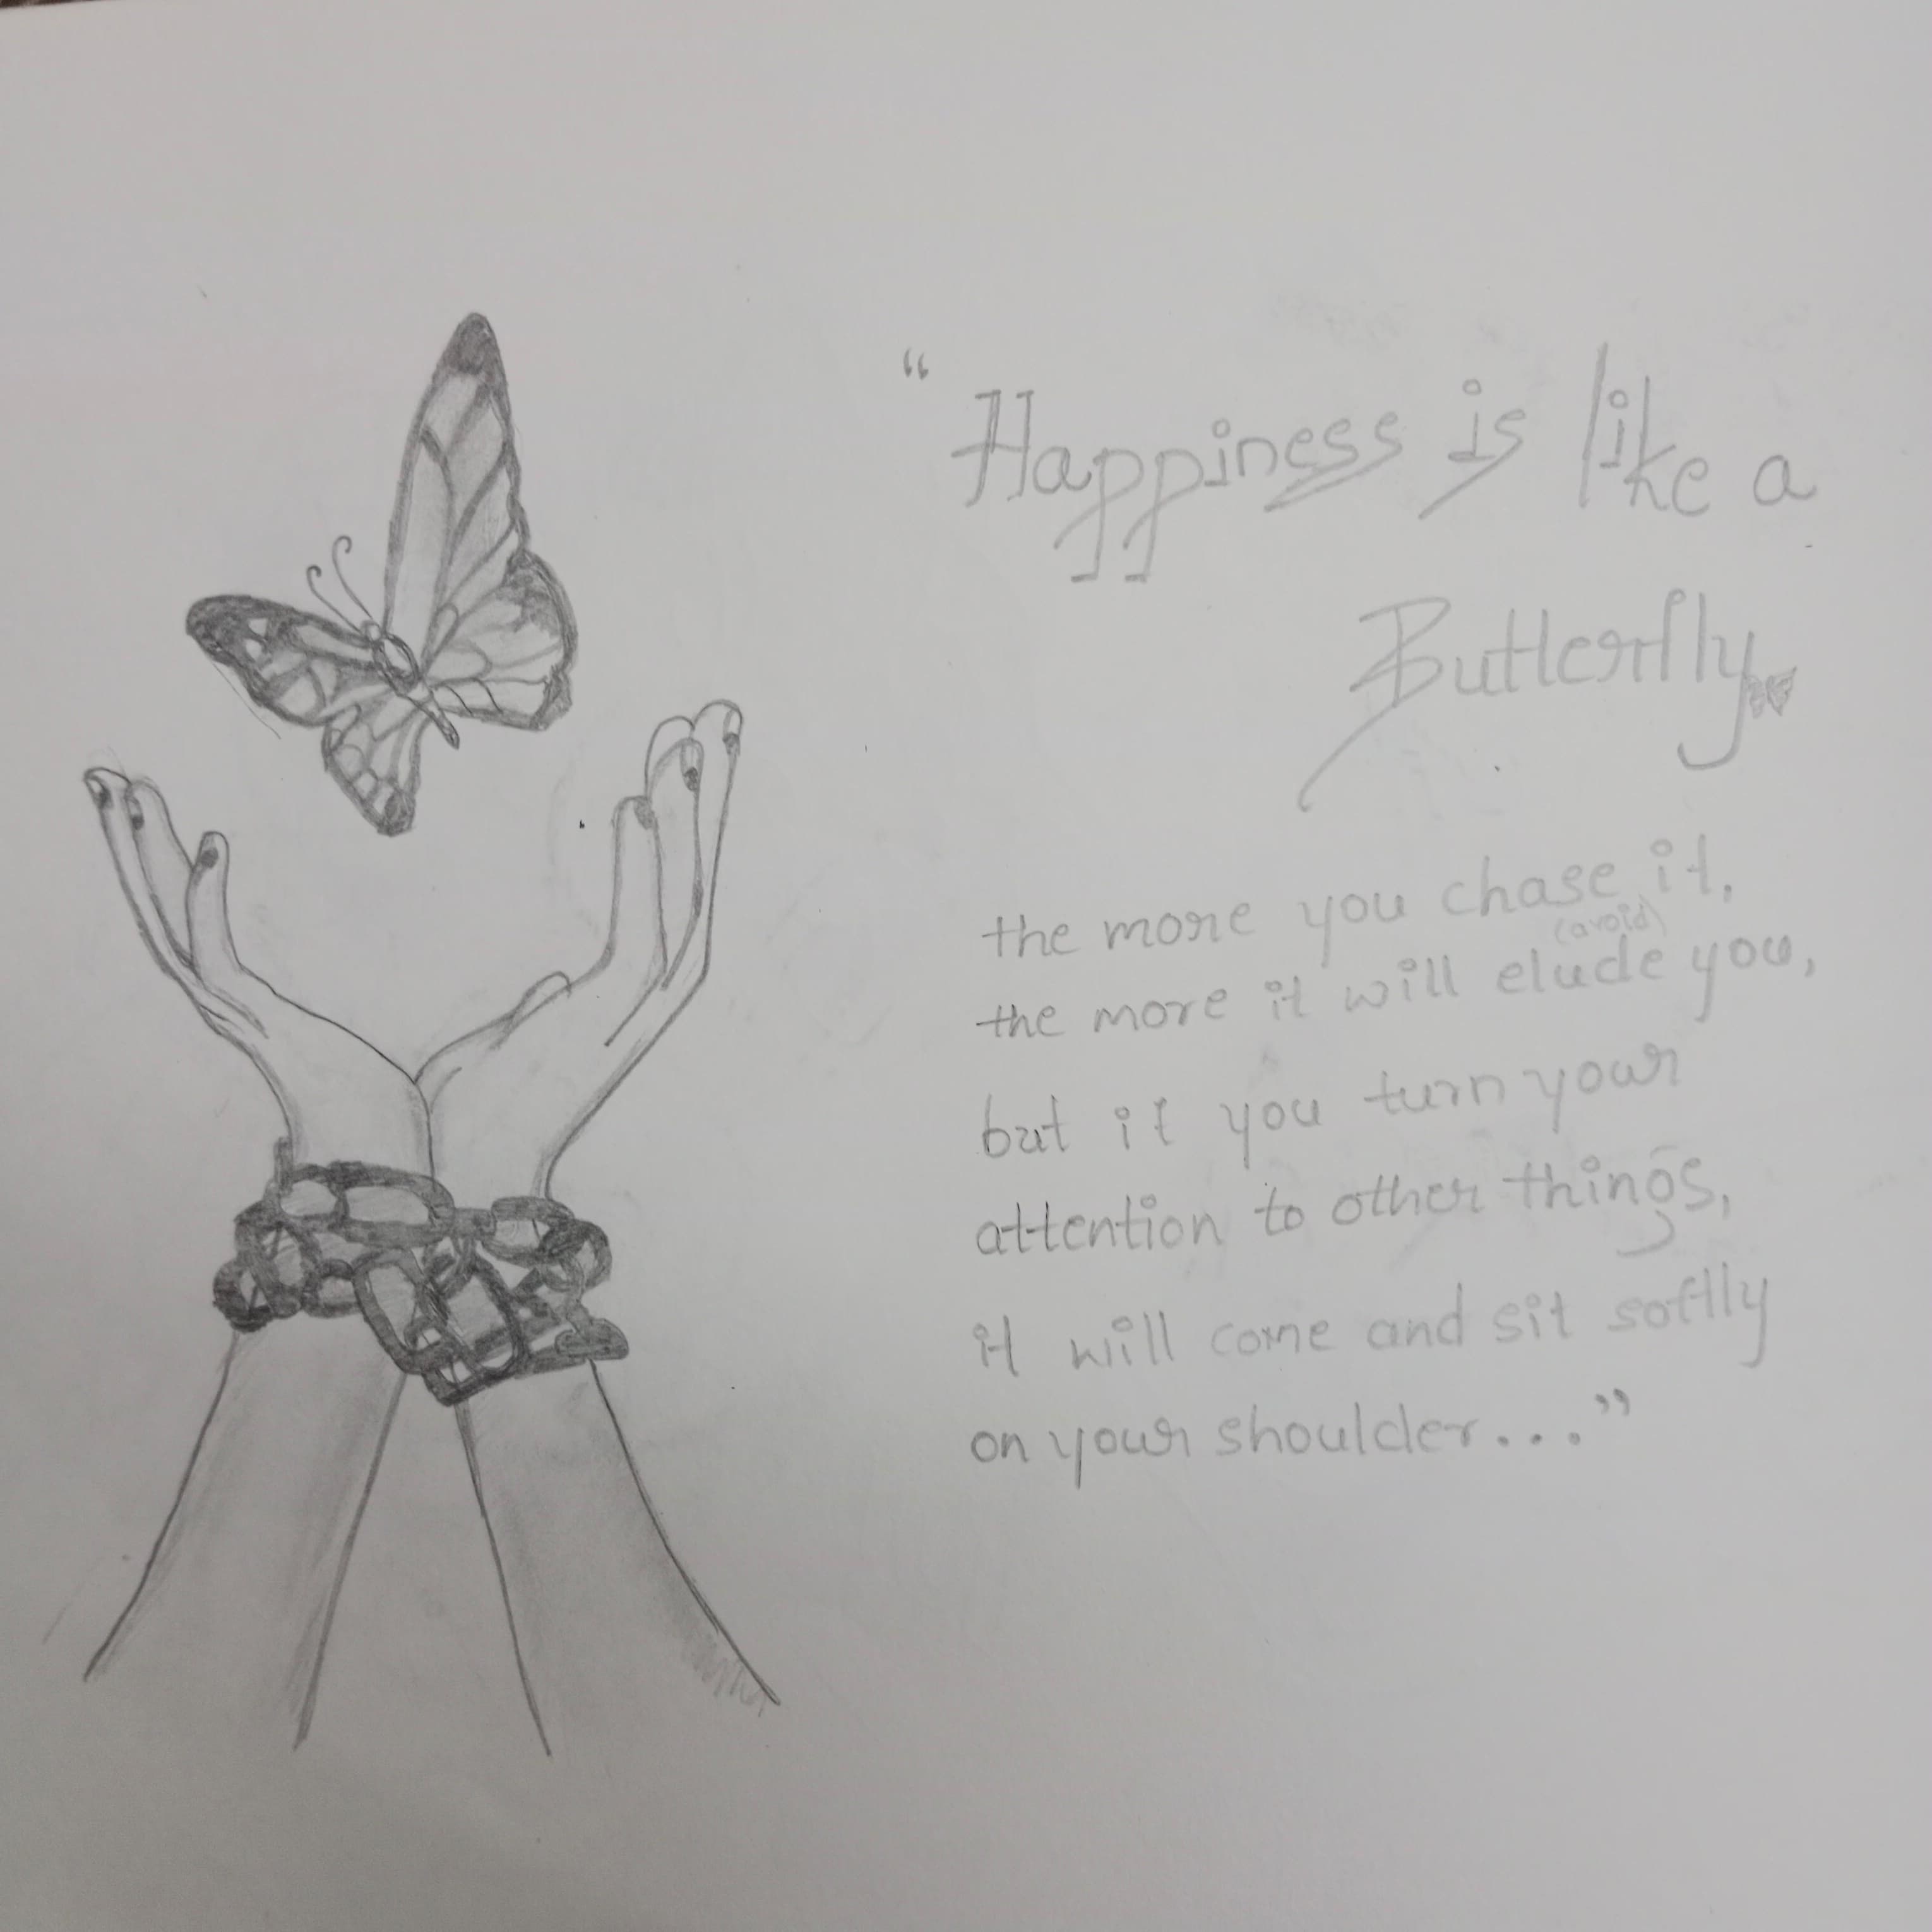 “ Happiness is like a
Butterfly
the more you chase it,
(avoid)
the more it will elude you,
but if you turn your
attention to other things,
it will come and sit softly
on your shoulder...”